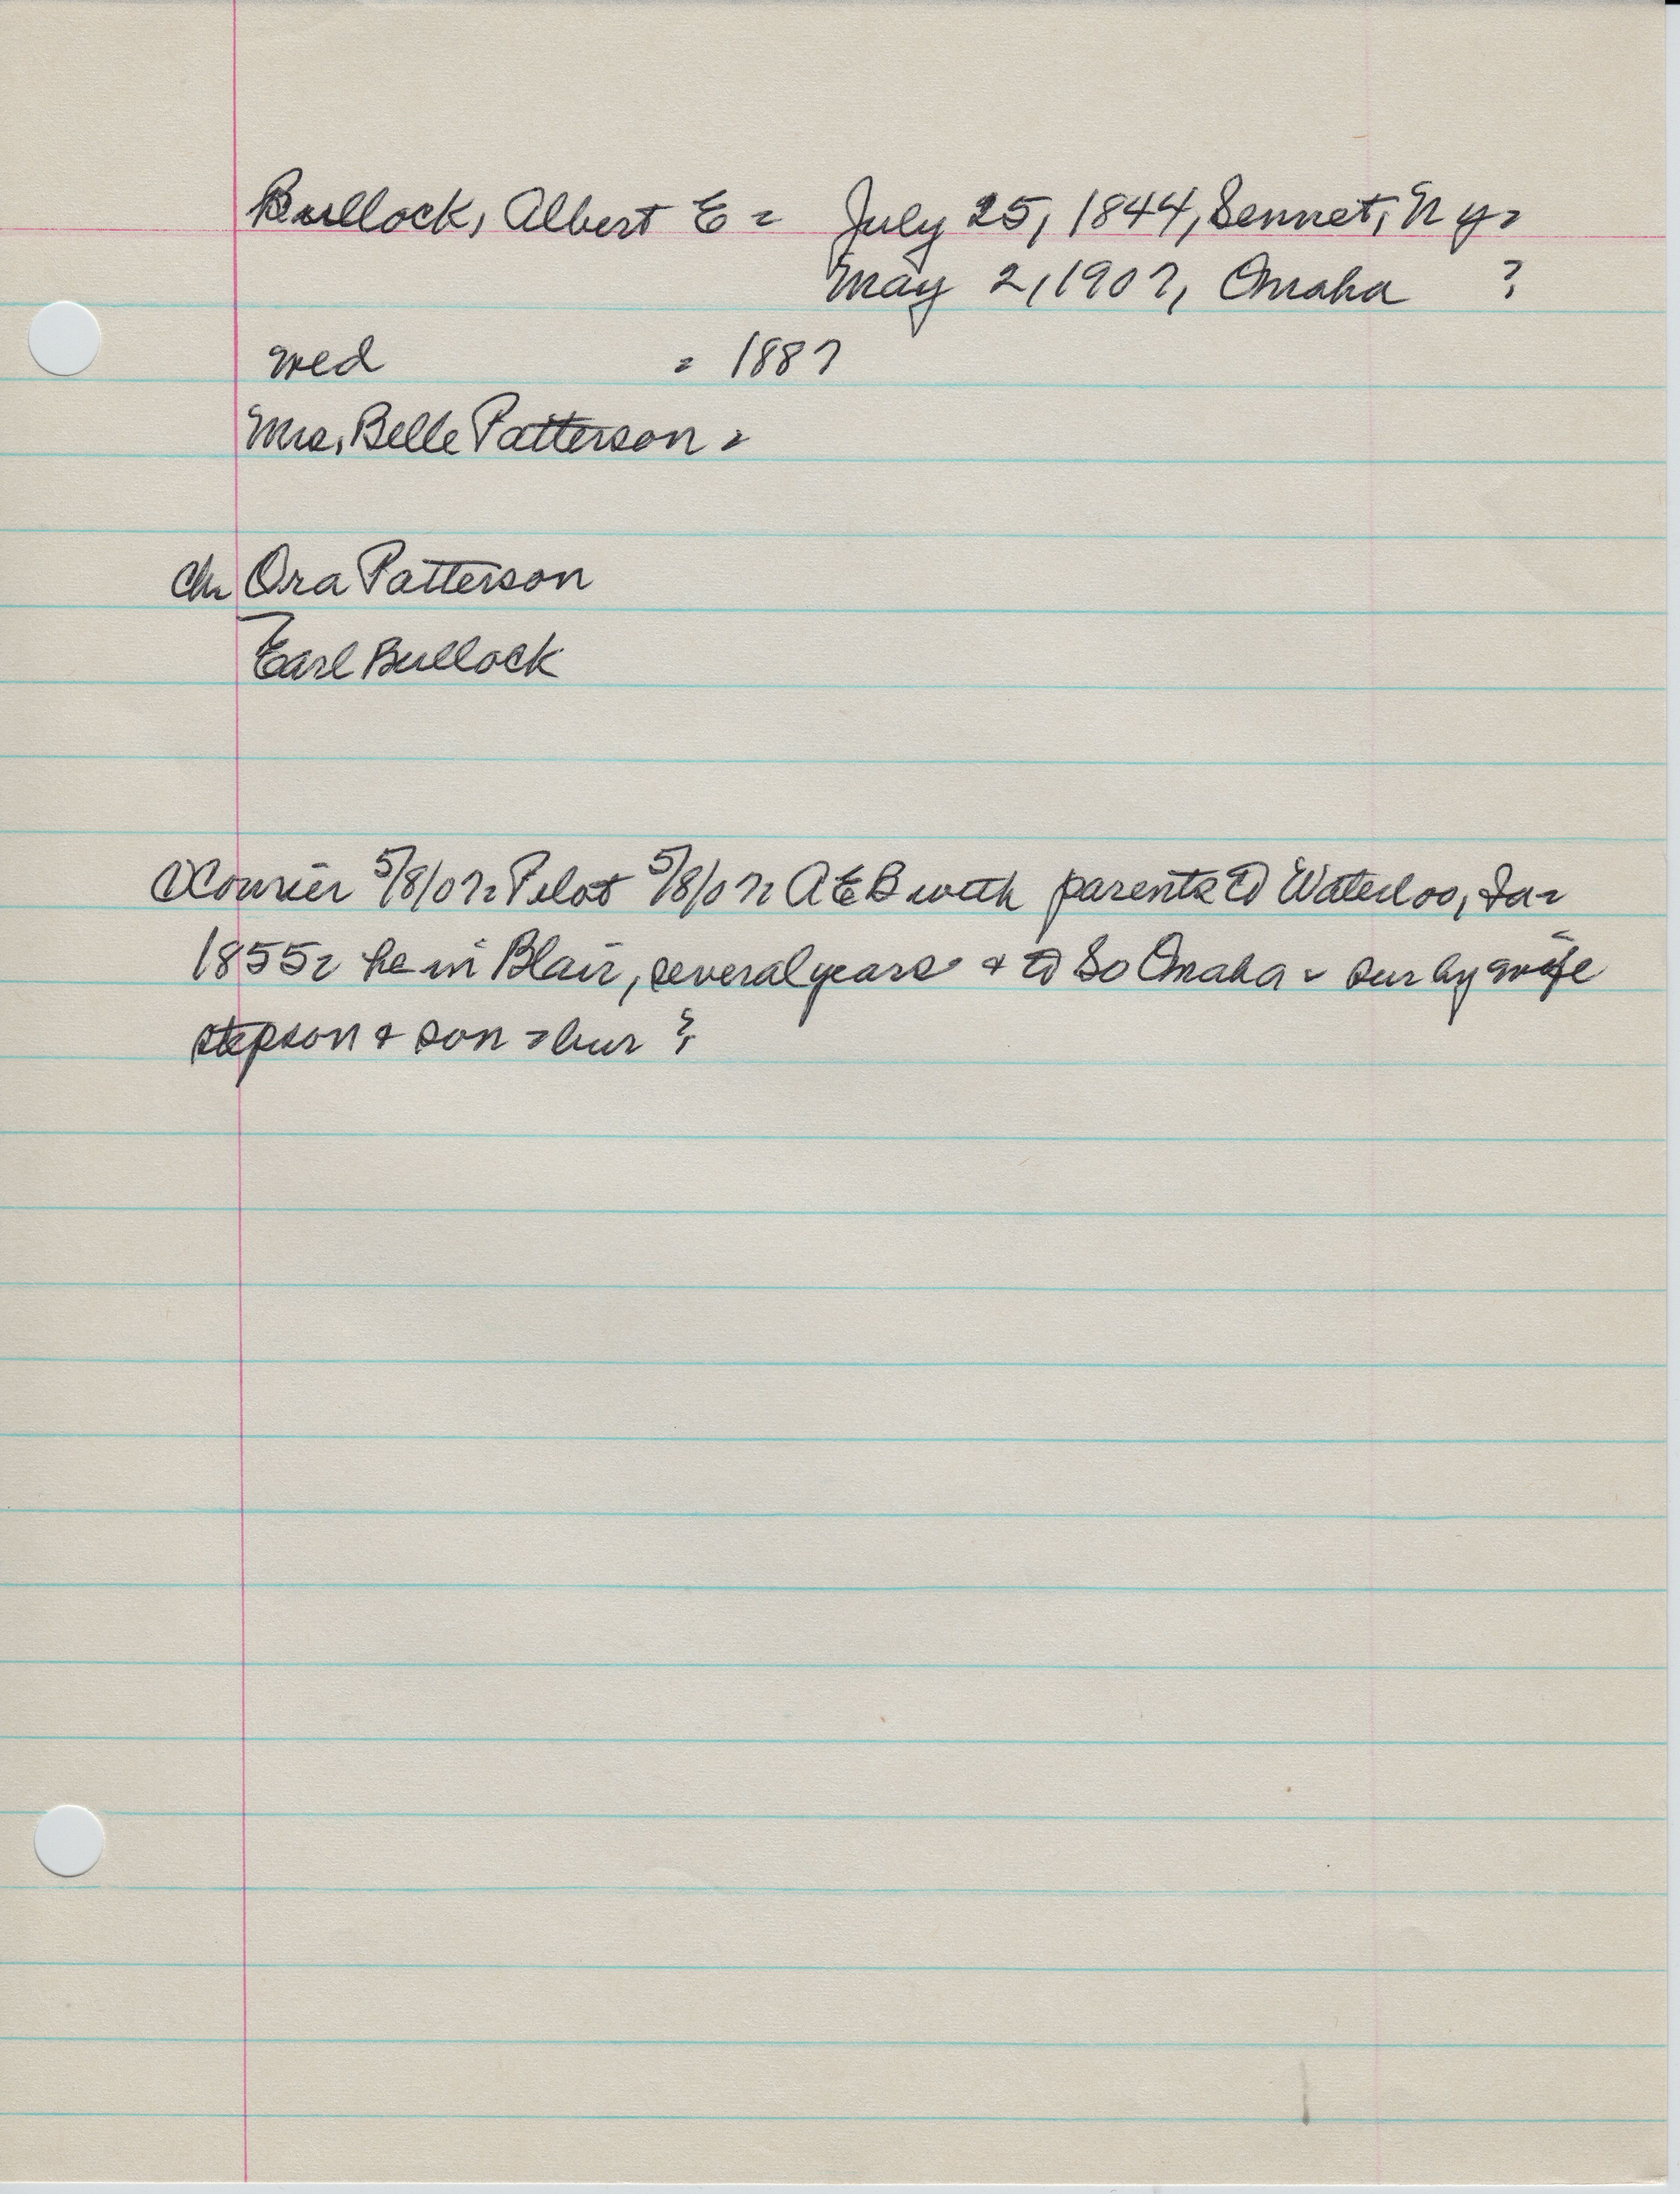 Bullock, Albert E - July 25, 1844, Sennet, N Y -
May 2, 1907, Omaha ?
wed - 1887
Mrs. Belle Patterson -
Ch Ora Patterson
Earl Bullock
Courier 5/8/07 - Pilot 5/8/07 - A E B with parents to Waterloo, Ia -
1855 - he in Blair, several years + to So Omaha - sur by wife
stepson + son - bur ?